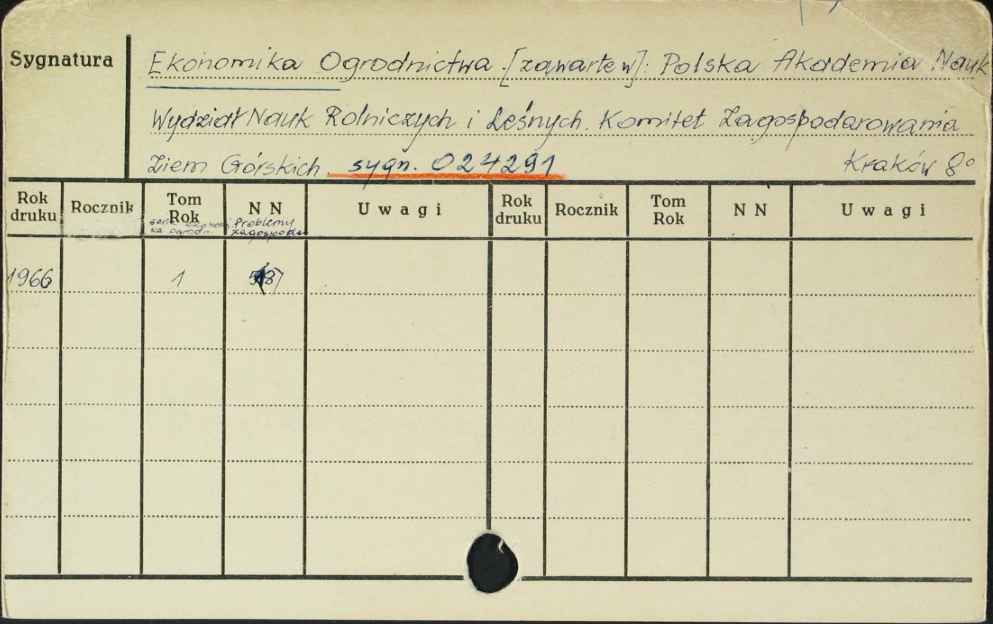 Sygnatura
Ekonomika Ogrodnictwa [zawarte w]: Polska Akademia Nauk
Wydział Nauk Rolniczych i Leśnych. Komitet Zagospodarowania
Ziem Górskich sygn. 024291 Kraków 8°
Rok druku Rocznik Tom Rok NN Uwagi Rok druku Rocznik Tom Rok NN Uwagi
Problemy
1966 1